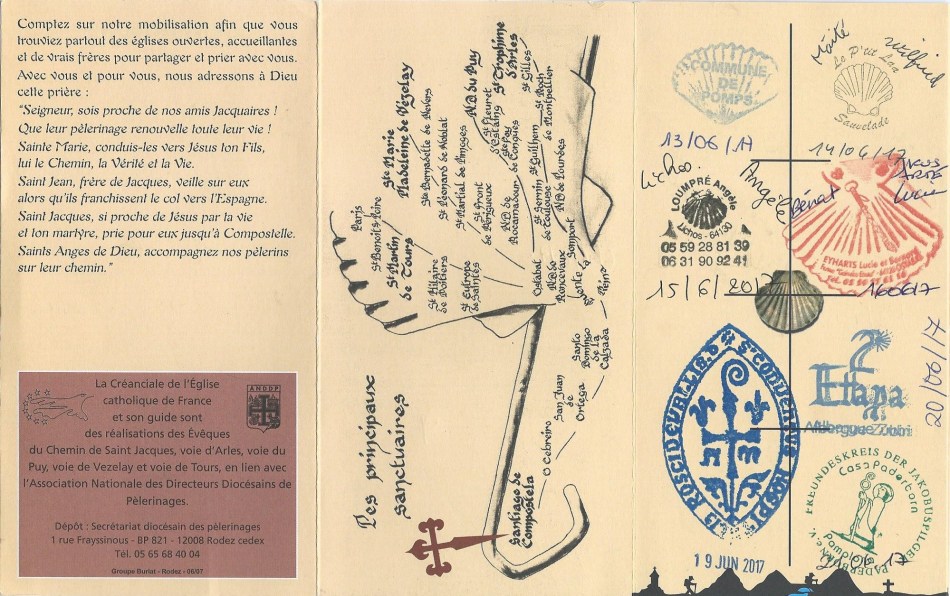 Comptez sur notre mobilisation afin que vous
trouviez partout des églises ouvertes, accueillantes
et de vrais frères pour partager et prier avec vous.
Avec vous et pour vous, nous adressons à Dieu
cette prière :
"Seigneur, sois proche de nos amis Jacquaires !
Que leur pèlerinage renouvelle toute leur vie !
Sainte Marie, conduis-les vers Jésus ton Fils,
lui le Chemin, la Vérité et la Vie.
Saint Jean, frère de Jacques, veille sur eux
alors qu'ils franchissent le col vers l'Espagne.
Saint Jacques, si proche de Jésus par ta vie
et ton martyre, prie pour eux jusqu'à Compostelle.
Saints Anges de Dieu, accompagnez nos pèlerins
sur leur chemin."
La Créanciale de l'Église
catholique de France
et son guide sont
des réalisations des Évêques
du Chemin de Saint Jacques, voie d'Arles, voie du
Puy, voie de Vezelay et voie de Tours, en lien avec
l'Association Nationale des Directeurs Diocésains de
Pèlerinages.
Dépôt : Secrétariat diocésain des pèlerinages
1 rue Frayssinous - BP 821 - 12008 Rodez cedex
Tél. 05 65 68 40 04
Groupe Burlat - Rodez - 06/07
ANDDP
Les principaux
sanctuaires
Paris
St Benoit s/Loire
St Martin
de Tours
St Hilaire
de Poitiers
St Eutrope
de Saintes
Ste Marie
Madeleine de Vezelay
Ste Bernadette de Nevers
St Léonard de Noblat
St Martial de Limoges
St Front
de Périgueux
ND de
Rocamadour
ND du Puy
St Fleuret
d'Estaing
Ste Foy
de Conques
St Trophime
d'Arles
St Gilles
St Roch
de Montpellier
St Guilhem
St Sernin
de Toulouse
ND de Lourdes
Ostabat
ND de
Roncevaux
Somport
Puente la
Reina
Santo
Domingo
de la
Calzada
San Juan
de
Ortega
O Cebreiro
Santiago de
Compostela
COMMUNE
DE
POMPS
13/06/17
Maïté
Wilfried
Le P'tit Laa
Sauvelade
14/06/17
Lichos.
Ange
LOUMPRÉ Angèle
Lichos - 64130
05 59 28 81 39
06 31 90 92 41
15/6/2017
Lucie
EYHARTS Lucie et
160617
19 JUN 2017
2
Etapa
Albergue Zubiri
20/06/17
FREUNDESKREIS DER JAKOBUSPILGER
PADERBORN e.V.
Casa Paderborn
Pamplona